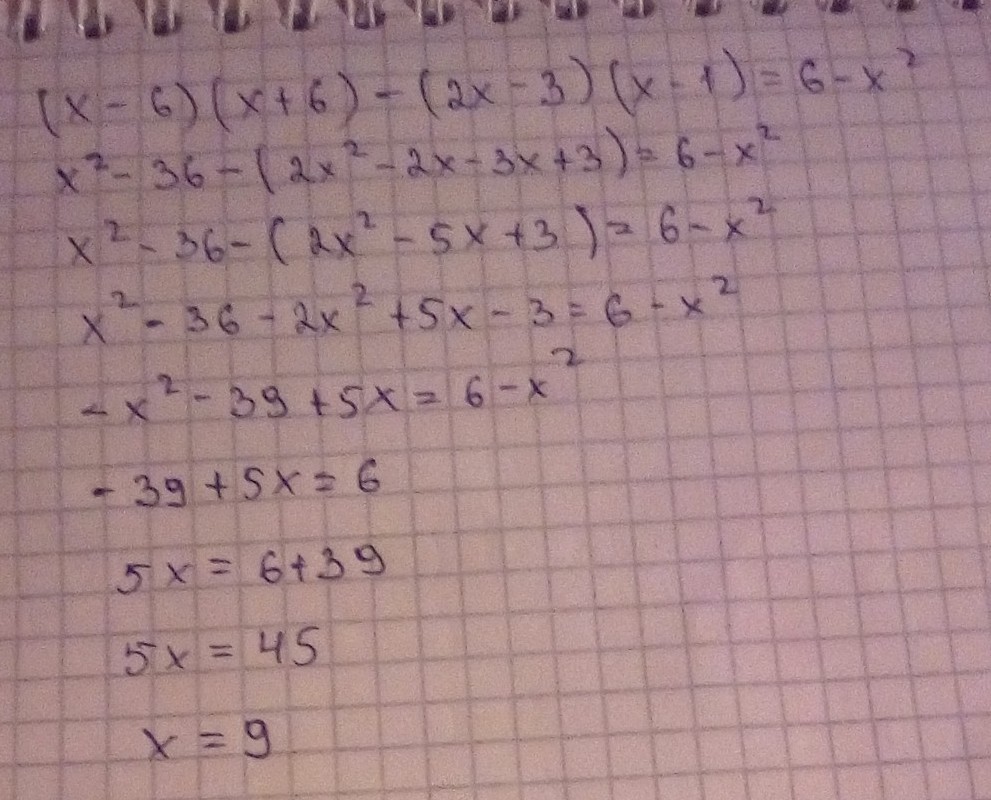 (x - 6)(x + 6) - (2x - 3)(x - 1) = 6 - x²
x² - 36 - (2x² - 2x - 3x + 3) = 6 - x²
x² - 36 - (2x² - 5x + 3) = 6 - x²
x² - 36 - 2x² + 5x - 3 = 6 - x²
- x² - 39 + 5x = 6 - x²
- 39 + 5x = 6
5x = 6 + 39
5x = 45
x = 9